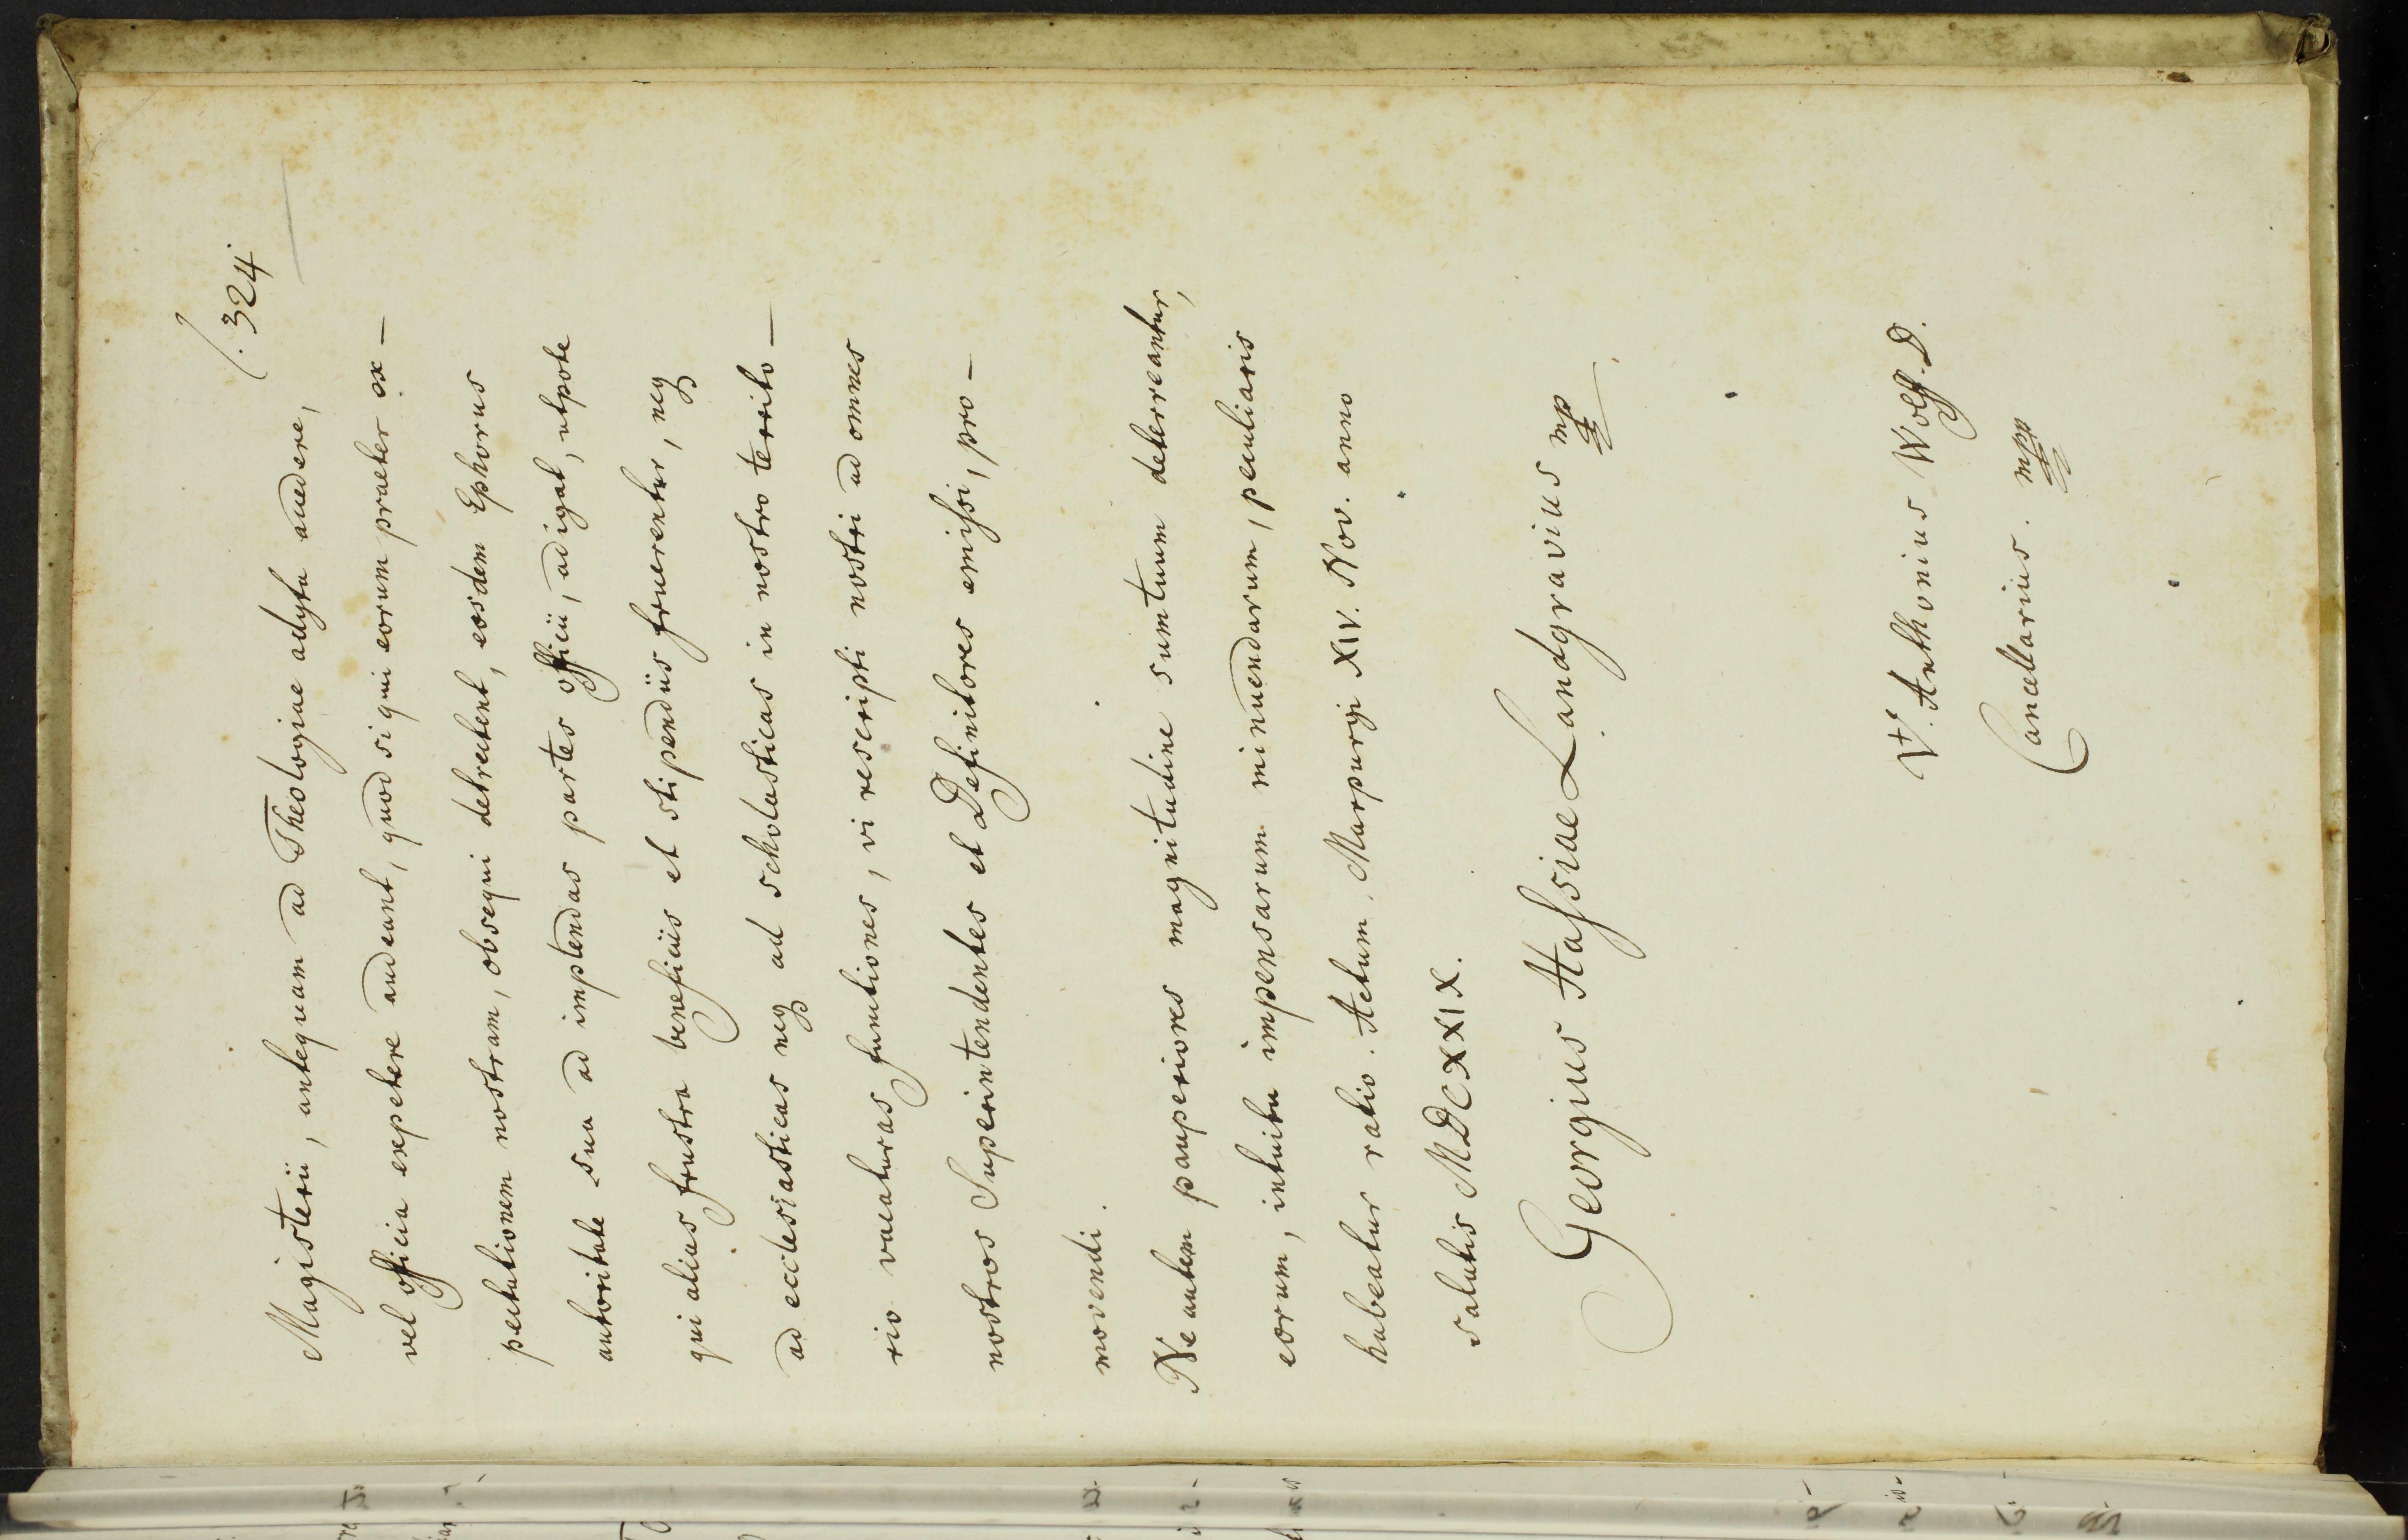 f. 324
Magisterii, antequam ad Theologiae adyta audere,
vel officia expetere audeant, quod si qui eorum praeter ex-
pectationem nostram, obsequi detrectent, eosdem Ephorus
autoritate sua ad implendas partes officii, adigat, utpote
qui alias frustra beneficiis et stipendiis fruerentur, neq
ad ecclesiasticas neq ad scholasticas in nostro territo-
rio vacaturas functiones, vi rescripti nostri ad omnes
nostros Superintendentes et Definitores emissi, pro-
movendi.
Ne autem pauperiores magnitudine sumtuum deterreantur,
eorum, intuitu impensarum minuendarum, peculiaris
habeatur ratio. Actum, Marpurgi XIV. Nov. anno
salutis MDCXXIX.
Georgius Hassiae Landgravius mp
Vt. Anthonius Wolff. D.
Cancellarius. mpp